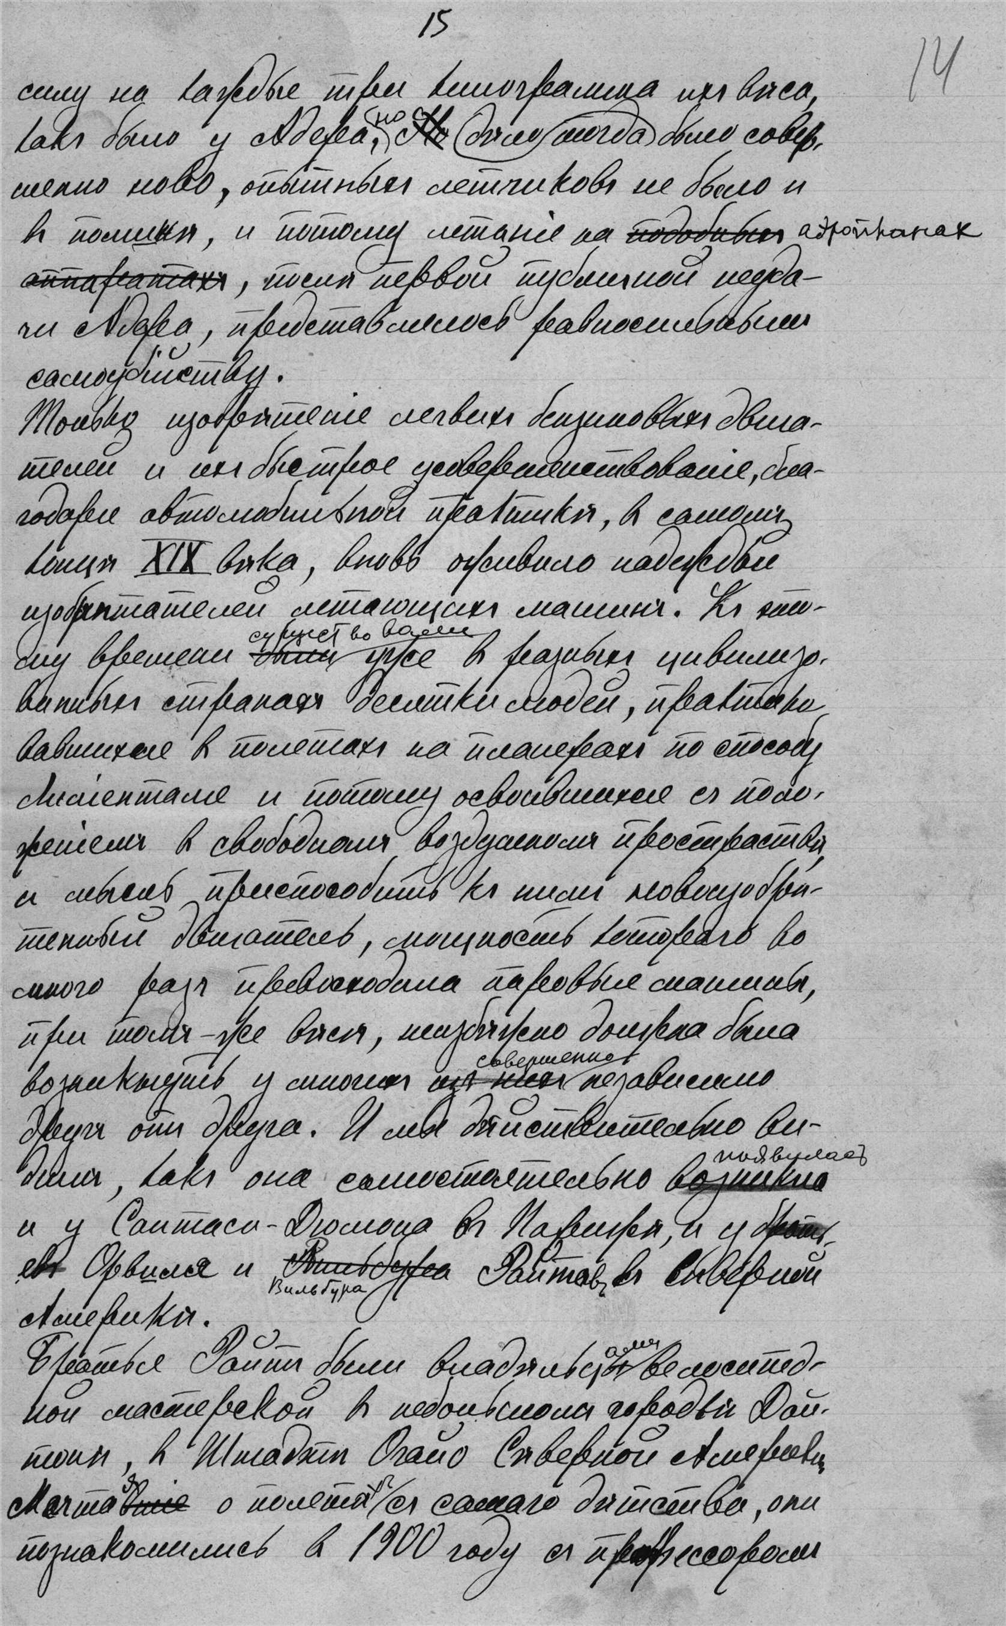 15
14
силу на каждые три килограмма их вѣса,
какъ было у Адера, но дѣло тогда было совер-
шенно ново, опытныхъ летчиковъ не было и
въ поминѣ, и потому летаніе на подобныхъ аэропланах
аппаратахъ, послѣ первой публичной неуда-
чи Адера, представлялось равносильнымъ
самоубійству.
Только изобрѣтеніе легкихъ бензиновыхъ двига-
телей и ихъ быстрое усовершенствованіе, бла-
годаря автомобильной практикѣ, въ самомъ
концѣ XIX вѣка, вновь оживило надежды
изобрѣтателей летающихъ машинъ. Къ это-
существовали
му времени были уже въ разныхъ цивилизо-
ванныхъ странахъ десятки людей, практико-
вавшихся въ полетахъ на планерахъ по способу
Лиліенталя и потому освоившихся съ поло-
женіемъ въ свободномъ воздушномъ пространствѣ,
и мысль приспособить къ нимъ новоизобрѣ-
тенный двигатель, мощность котораго во
много разъ превосходила паровые машины,
при томъ-же вѣсѣ, неизбѣжно должна была
совершенно
возникнуть у многихъ изъ нихъ независимо
другъ отъ друга. И мы дѣйствительно ви-
появулась
димъ, какъ она самостоятельно возникла
и у Сантаси-Дюмона въ Парижѣ, и у брать-
евъ Орвиля и Вильбура Райтовъ въ Сѣверной
Вильбура
Америкѣ.
Братья Райтъ были владѣльцами велосипед-
ной мастерской въ небольшомъ городкѣ Дай-
тонѣ, въ Штадтѣ Огайо Сѣверной Америки.
Мечтая о полетахъ съ самаго дѣтства, они
познакомились въ 1900 году съ профессоромъ